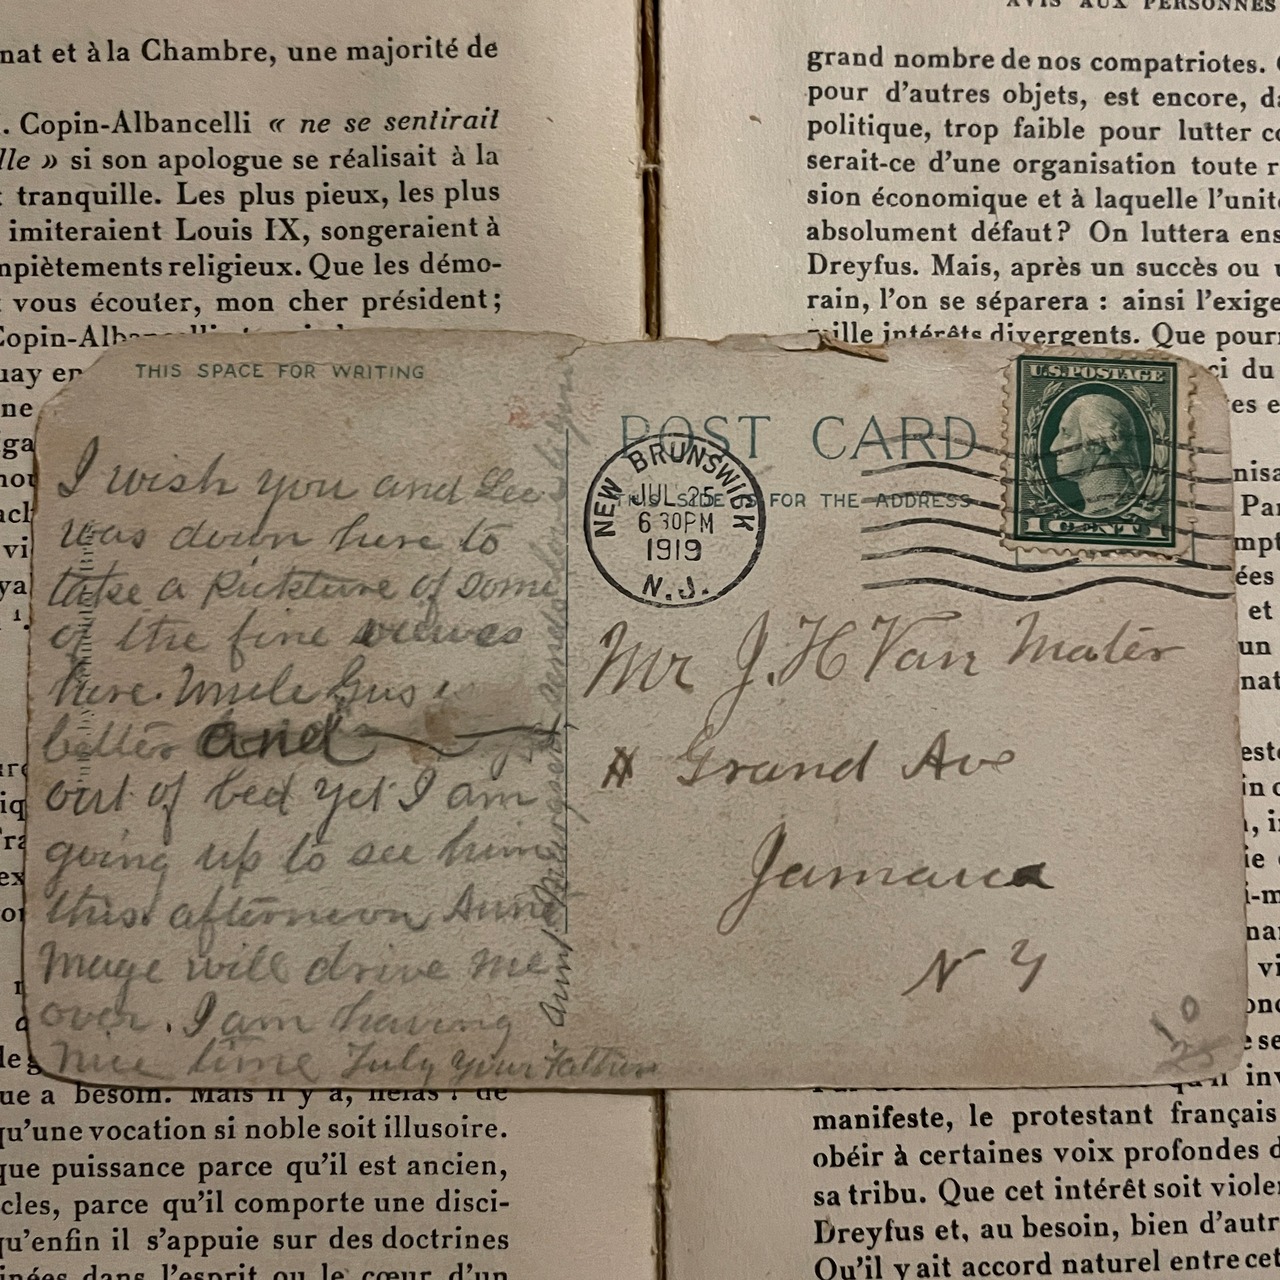 nat et à la Chambre, une majorité de
. Copin-Albancelli « ne se sentirait
lle » si son apologue se réalisait à la
tranquille. Les plus pieux, les plus
imiteraient Louis IX, songeraient à
mpiètements religieux. Que les démo-
vous écouter, mon cher président;
Copin-Alb
uay en
ne
AVIS AUX PERSONNES
grand nombre de nos compatriotes.
pour d'autres objets, est encore, da
politique, trop faible pour lutter co
serait-ce d'une organisation toute r
sion économique et à laquelle l'unité
absolument défaut? On luttera ens
Dreyfus. Mais, après un succès ou u
rain, l'on se séparera : ainsi l'exige
mille intérêts divergents. Que pour
ci du
es e
THIS SPACE FOR WRITING
I wish you and Lee
was down here to
take a Pickture of some
of the fine views
here. Uncle Gus is
better and
out of bed yet I am
going up to see him
this afternoon Aunt
Mage will drive me
over. I am having
nice time July your Father
Aunt Margaret sends love to you
POST CARD
THIS SIDE IS FOR THE ADDRESS
NEW BRUNSWICK
JUL 25
6 30PM
1919
N.J.
U.S. POSTAGE
1 CENT 1
Mr J. H Van Mater
Grand Ave
Jamaica
N Y
10
ue a besoin. Mais il y a, hélas ! de
qu'une vocation si noble soit illusoire.
que puissance parce qu'il est ancien,
cles, parce qu'il comporte une disci-
qu'enfin il s'appuie sur des doctrines
inées dans l'esprit ou le cœur d'un
qu'il inv
manifeste, le protestant français
obéir à certaines voix profondes d
sa tribu. Que cet intérêt soit violen
Dreyfus et, au besoin, bien d'autr
Qu'il y ait accord naturel entre cet